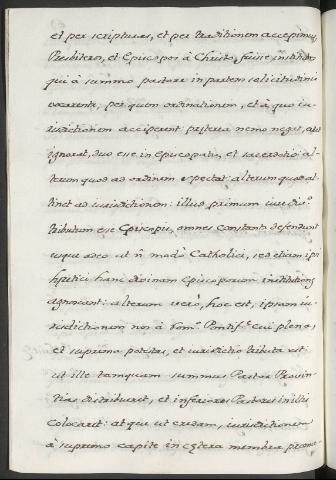 et per scripturas, et per traditionem accepimus,
Presbiteros, et Episcopos à Christo, fuisse institutos
qui à summo pastore in partem solicitudinis
vocarentur, per quem ordinationem, et à quo iu-
risdictionem acciperent praeterea nemo negat, aut
ignorat, duo esse in Episcopatu, et sacerdotio al-
terum quod ad ordinem spectat alterum quod at-
tinet ad iurisdictionem: illud primum iure diuo
tributum esse Episcopis, omnes constanter defendunt
usque adeo ut n modo Catholici, sed etiam ipsi
heretici hanc diuinam Episcoporum institutione
agnoscant: alterum vero, hoc est, ipsam iu-
risdictionem non à Rom. Pontif.e cui plena,
et suprema potestas, et iurisdictio tributa est:
ut ille tamquam summus Pastor Provin-
tias distribuerit, et inferiores Pastores in illis
colocarit: at qui ut credam, iurisdictionem
à supremo capite in cetera membra